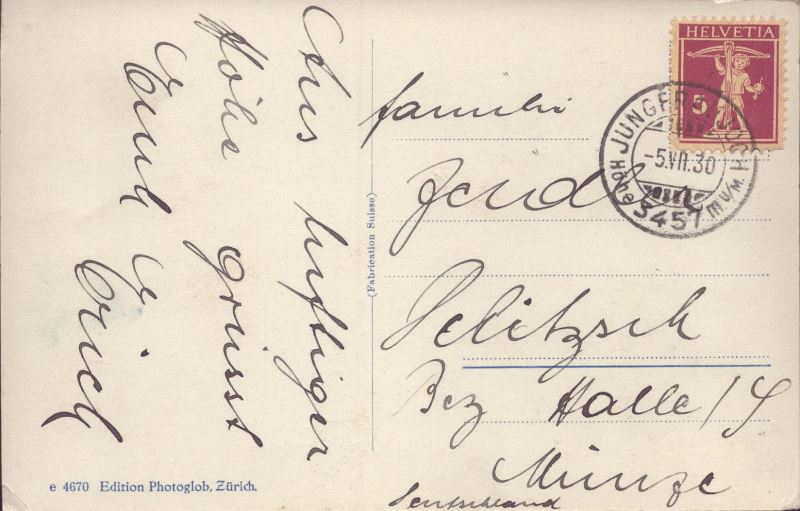 Aus luftiger
Höhe grüsst
Euch
Erich
HELVETIA
5
JUNGFRAUJOCH
-5.VII.30
Höhe 3457 m ü/M.
Familie
Delitzsch
Bez Halle/S
Münze
Deutschland
(Fabrication Suisse)
e 4670 Edition Photoglob, Zürich.